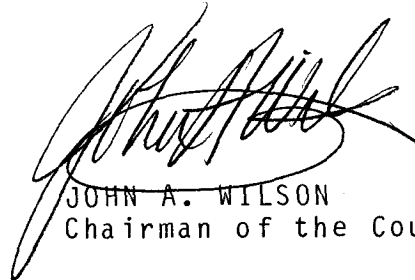 JOHN A. WILSON
Chairman of the Cou